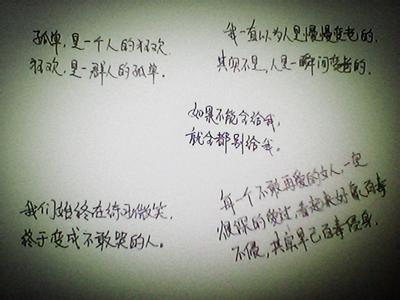 孤单,是一个人的狂欢
狂欢,是一群人的孤单.
我一直以为人是慢慢变老的.
其实不是,人是一瞬间变老的.
如果不能全给我,
就全都别给我.
我们始终在练习微笑,
终于变成不敢哭的人.
每一个不敢再爱的女人,一定
狠狠的爱过,看起来好象百毒
不侵,其实早已百毒侵身.